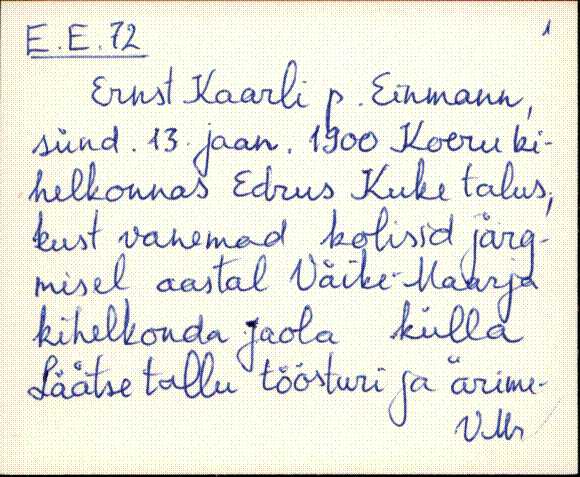 E.E.72
1
Ernst Kaarli p. Einmann,
sünd. 13. jaan. 1900 Koeru ki-
helkonnas Edrus Kuke talus,
kust vanemad kolisid järg-
misel aastal Väike-Maarja
kihelkonda Jaola külla
Läätse tallu töösturi ja ärime-
VMr